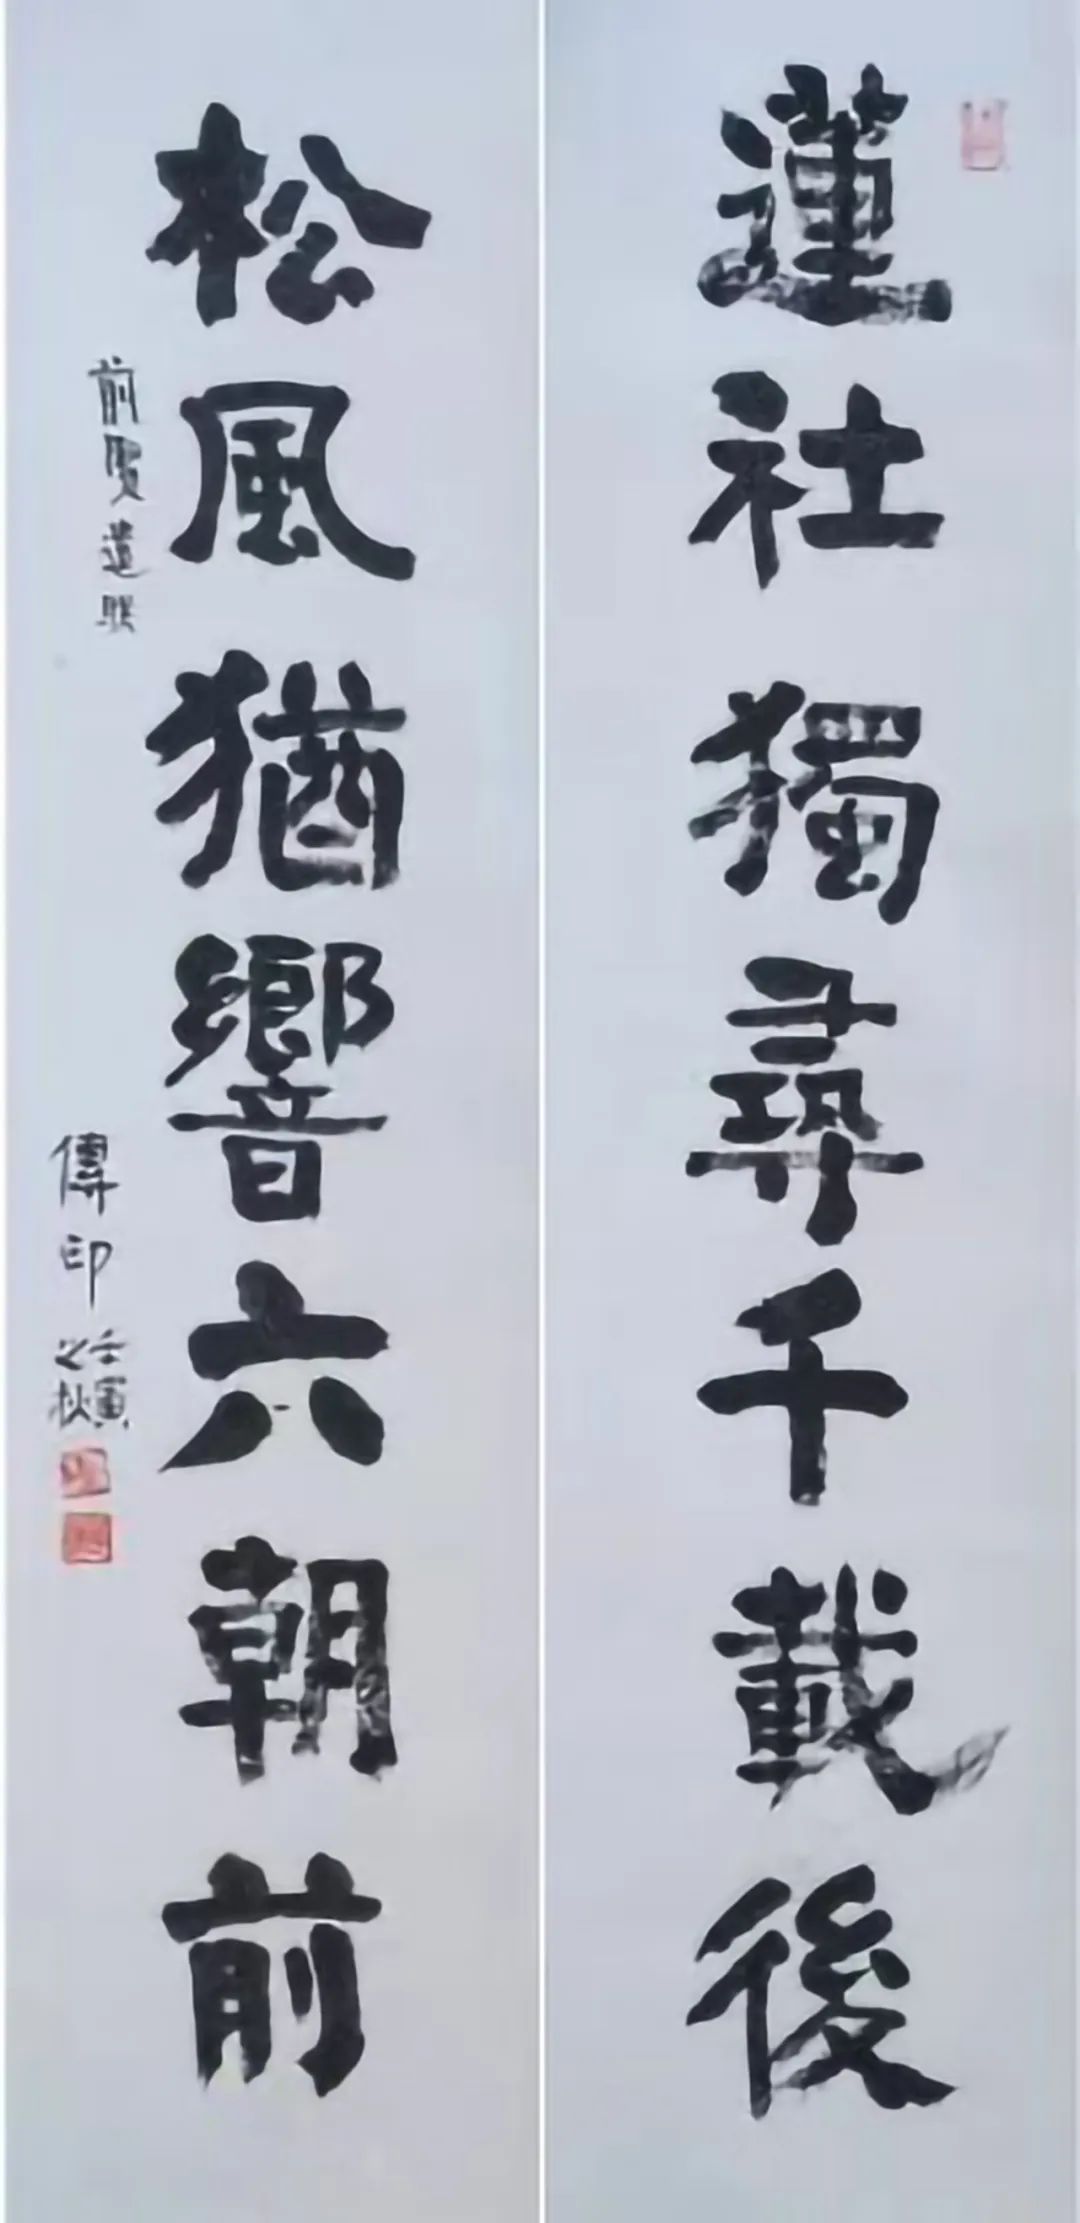 蓮社獨尋千載後
松風猶響六朝前
前賢遺联
傳印
壬寅
之秋